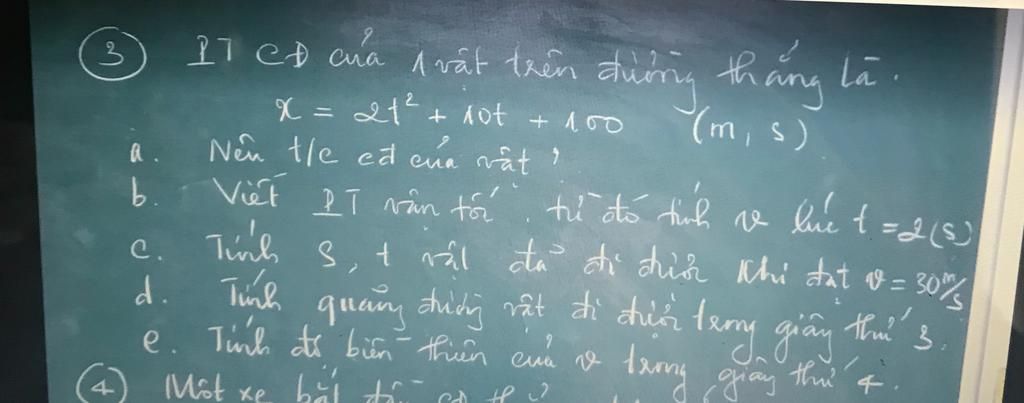 ③ PT CĐ của 1 vật trên đường thẳng là.
x = 2t² + 10t + 100 (m, s)
a. Nêu t/c cđ của vật?
b. Viết PT vận tốc, từ đó tính v lúc t = 2(s)
c. Tính S, t vật đã đi được khi đạt v = 30 m/s
d. Tính quãng đường vật đi được trong giây thứ 3.
e. Tính độ biến thiên của v trong giây thứ 4.
④ Một xe bắt đầu cđ